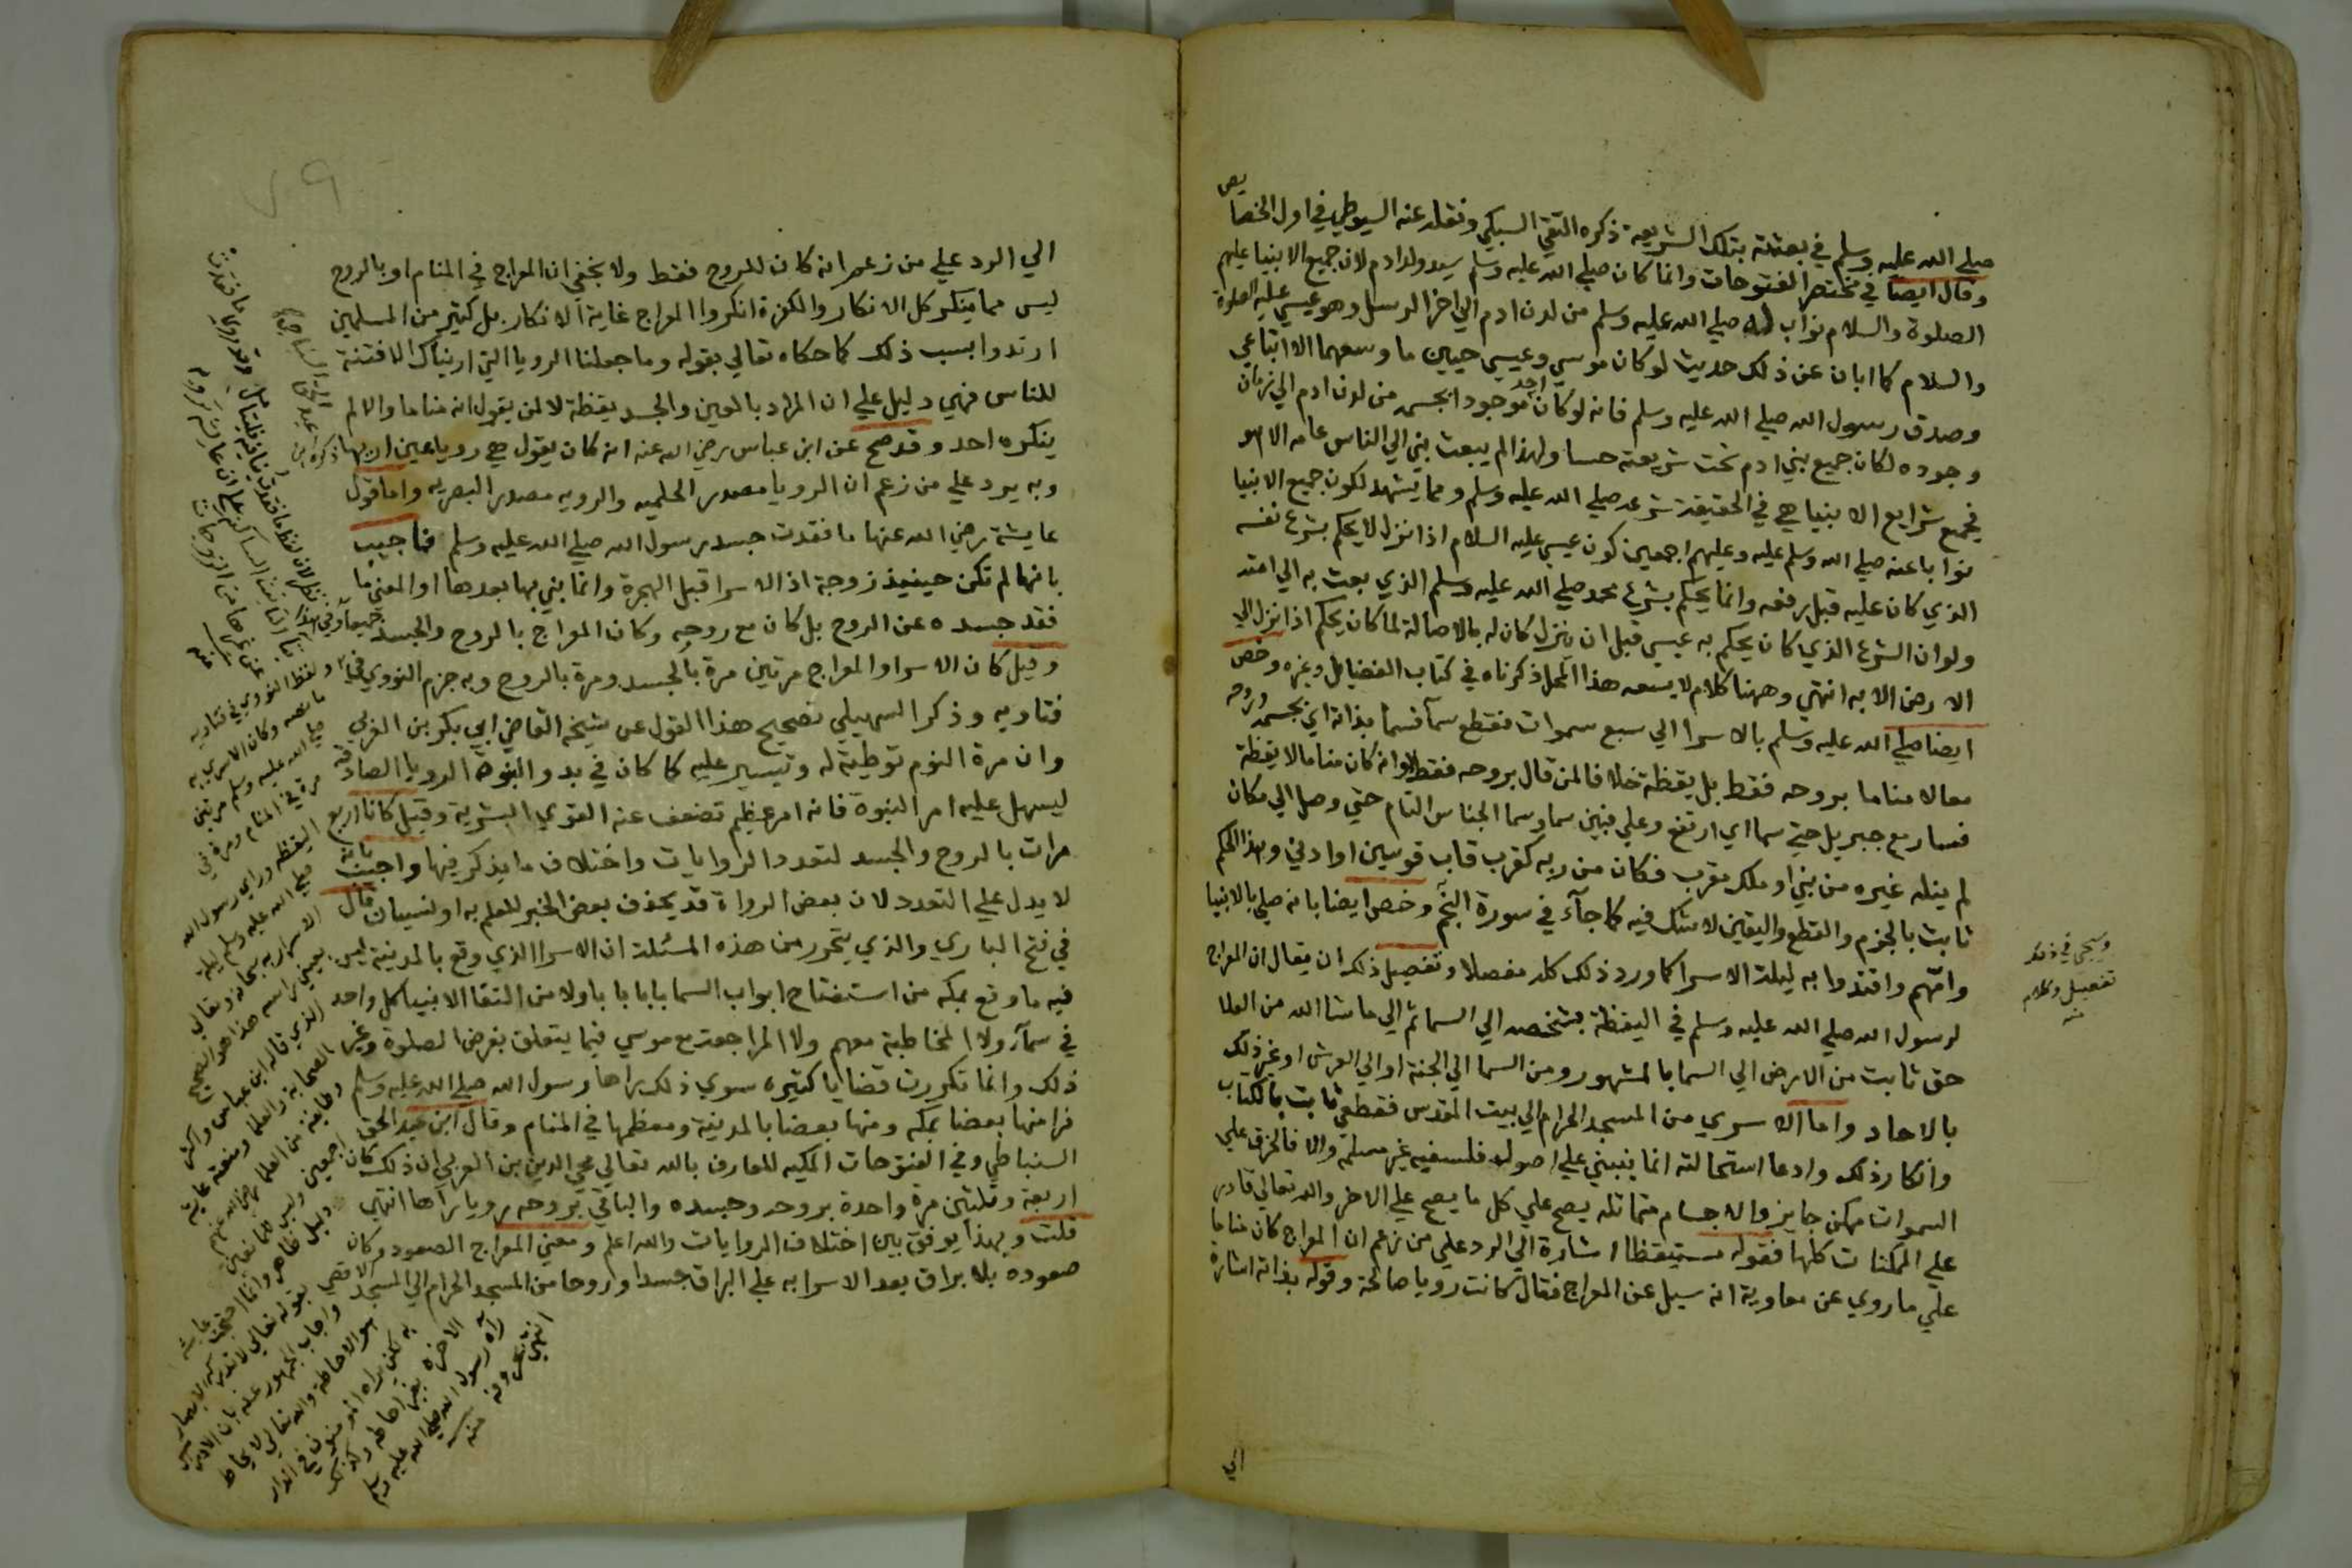 صلي الله عليه وسلم في بعثته بتلك الشريعة ذكره التقي السبكي ونقله عنه السيوطي في اول الخصا
يص
وقال ايضا في مختصر الفتوحات وانما كان صلي الله عليه وسلم سيد ولد ادم لان جميع الانبيا عليهم
الصلوة والسلام نواب له صلي الله عليه وسلم من لدن ادم الي اخر الرسل وهو عيسي عليه الصلوة
والسلام كما ابان عن ذلك حديث لو كان موسي وعيسي حيين ما وسعهما الا اتباعي
وصدق رسول الله صلي الله عليه وسلم فانه لو كان موجودا بجسمه من لدن ادم الي زمان
وجوده لكان جميع بني ادم تحت شريعته حسا ولهذا لم يبعث نبي الي الناس عامه الا هو
فجميع شرايع الانبيا هي في الحقيقة شرعه صلي الله عليه وسلم ومما يشهد لكون جميع الانبيا
نوابا عنه صلي الله وسلم عليه وعليهم اجمعين كون عيسي عليه السلام اذا نزل لا يحكم بشرع نفسه
الذي كان عليه قبل رفعه وانما يحكم بشرع محمد صلي الله عليه وسلم الذي بعث به الي امته
ولو ان الشرع الذي كان يحكم به عيسي قبل ان ينزل كان له بالاصالة لما كان يحكم اذا نزل الي
الارض الا به انتهي وههنا كلام لا يسعه هذا المحل ذكرناه في كتاب الفضايل وغيره وخص
ايضا صلي الله عليه وسلم بالاسرا الي سبع سموات فقطع سمآ فسمآ بذاته اي بجسمه وروحه
معا لا مناما بروحه فقط بل يقظة خلافا لمن قال بروحه فقط او انه كان مناما لا يقظة
فسار مع جبريل حتي سما اي ارتفع وعلي فبين سما وسما الجناس التام حتي وصل الي مكان
لم ينله غيره من نبي او ملك مقرب فكان من ربه كقرب قاب قوسين او ادني وهذا الحكم
ثابت بالجزم والقطع واليقين لا شك فيه كما جآء في سورة النجم وخص ايضا بانه صلي بالانبيا
وامّهم واقتدوا به ليلة الاسرا كما ورد ذلك كله مفصلا وتفصيل ذلك ان يقال ان المعراج
لرسول الله صلي الله عليه وسلم في اليقظة بشخصه الي السما ثم الي ما شا الله من العلا
حق ثابت من الارض الي السما بالمشهور ومن السما الي الجنة او الي العرش او غير ذلك
بالاحاد واما الاسري من المسجد الحرام الي بيت المقدس فقطعي ثابت بالكتاب
وانكار ذلك وادعا استحالته انما ينبني علي اصول فلسفيه غير مسلمه والا فالخرق علي
السموات ممكن جايز والاجسام متماثله يصح علي كل ما يصح علي الاخر والله تعالي قادر
علي الممكنات كلها فقوله مستيقظا اشارة الي الرد علي من زعم ان المعراج كان مناما
علي ما روي عن معاوية انه سيل عن المعراج فقال كانت رويا صالحة وقوله بذاته اشارة
الي
الي الرد علي من زعم انه كان للروح فقط ولا يخفي ان المعراج في المنام او بالروح
ليس مما ينكر كل الانكار والكفرة انكروا المعراج غاية الانكار بل كثير من المسلمين
ارتدوا بسبب ذلك كما حكاه تعالي بقوله وما جعلنا الرويا التي اريناك الا فتنة
للناس فهي دليل علي ان المراد بالعين والجسد يقظة لا لمن يقول انه مناما والا لم
ينكره احد وقد صح عن ابن عباس رضي الله عنه انه كان يقول هي رويا عين اريها
وبه يرد علي من زعم ان الرويا مصدر الحلميه والرويه مصدر البصريه واما قول
عايشة رضي الله عنها ما فقدت جسد رسول الله صلي الله عليه وسلم فاجيب
بانها لم تكن حينيذ زوجة اذ الاسرا قبل الهجرة وانما بني بها بعدها او المعني ما
فقد جسده عن الروح بل كان مع روحه وكان المعراج بالروح والجسد جميعا
وقيل كان الاسرا والمعراج مرتين مرة بالجسد ومرة بالروح وبه جزم النووي في
فتاويه وذكر السهيلي تصحيح هذا القول عن شيخه القاضي ابي بكر بن العربي
وان مرة النوم توطية له وتيسير عليه كما كان في بدو النبوة الرويا الصادقه
ليسهل عليه امر النبوة فانه امر عظيم تضعف عنه القوي البشرية وقيل كانا اربع
مرات بالروح والجسد لتعدد الروايات واختلاف ما يذكر فيها واجيب بانه
لا يدل علي التعدد لان بعض الرواة قد يحذف بعض الخبر للعلم به او لنسيان قال
في فتح الباري والذي يتحرر من هذه المسئلة ان الاسرا الذي وقع بالمدينة ليس
فيه ما وقع بمكه من استفتاح ابواب السما بابا بابا ولا من التقا الانبيا كل واحد
في سمآء ولا المخاطبة معهم ولا المراجعة مع موسي فيما يتعلق بفرض الصلوة وغير
ذلك وانما تكررت قضايا كثيره سوي ذلك راها رسول الله صلي الله عليه وسلم
فراي منها بعضا بمكه ومنها بعضا بالمدينة ومعظمها في المنام وقال ابن عبد الحق
السنباطي وفي الفتوحات المكيه للعارف بالله تعالي محي الدين بن العربي ان ذلك كان
اربعة وثلثين مرة واحدة بروحه وجسده والباقي بروحه رويا راها انتهي
قلت وبهذا يوفق بين اختلاف الروايات والله اعلم ومعني المعراج الصعود وكان
صعوده بلا براق بعد الاسرا به علي البراق جسدا وروحا من المسجد الحرام الي المسجد الاقصي
ولفظ النووي في فتاويه
ما نصه وكان الاسري به
صلي الله عليه وسلم مرتين
مرة في المنام ومرة في
اليقظه وراي رسول الله
صلي الله عليه وسلم ليلة
الاسرا ربه سبحانه وتعالي
بعيني راسه هذا هو الصحيح
الذي قاله ابن عباس واكثر
الصحابة والعلما ومنعته عايشة
وطايفة من العلما رضي الله عنهم
اجمعين وليس للمانعين
دليل ظاهر وانما احتجت عايشه
بقوله تعالي لا تدركه الابصار
واجاب الجمهور عنه بان الادراك
هو الاحاطة والله تعالي لا يحاط
به لكن يراه المومنون في الدار
الاخرة بغير احاطه وكذلك
راه رسول الله صلي الله عليه وسلم